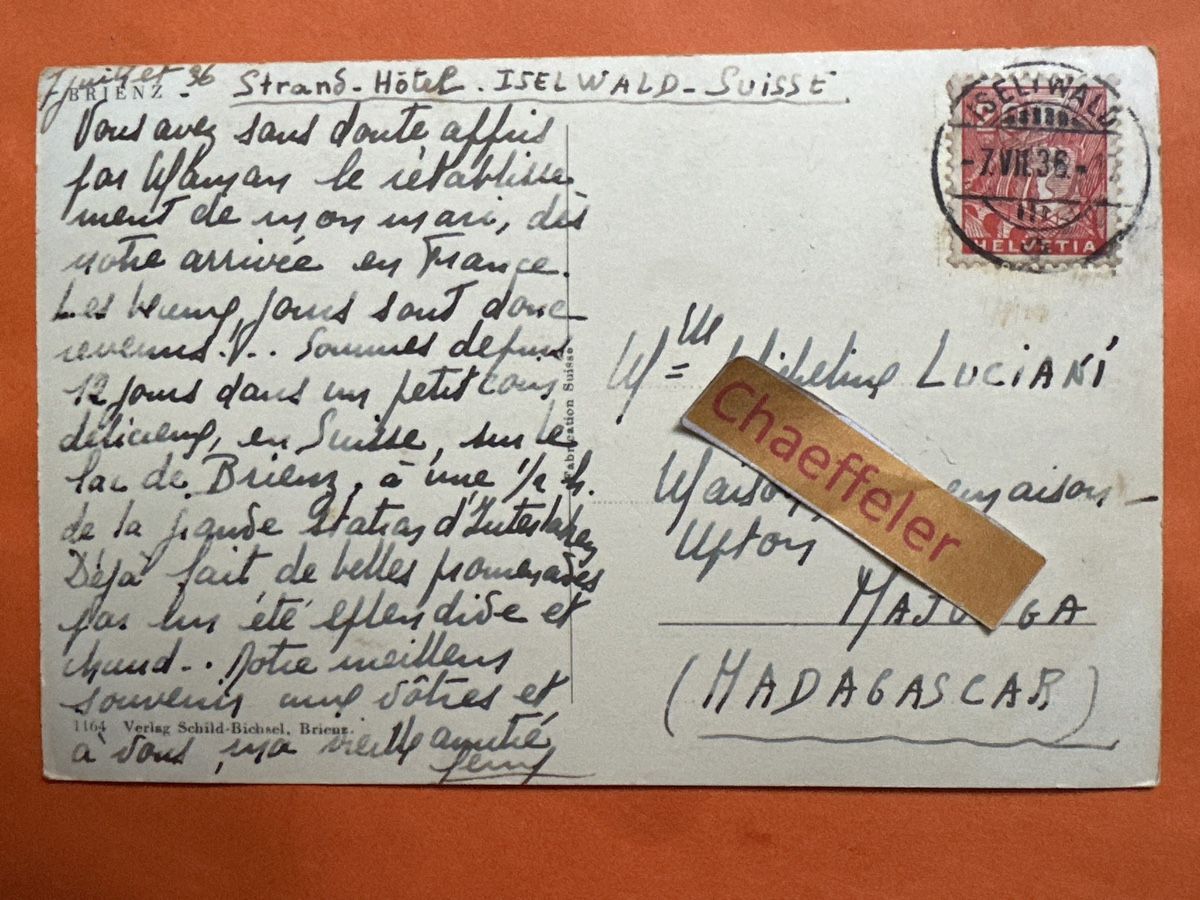 7 juillet 36
BRIENZ -
Strand-Hôtel. ISELWALD-SUISSE
Vous avez sans doute appris
par Maman le rétablisse-
ment de mon mari, dès
notre arrivée en France.
Les vieux jours sont donc
revenus... Sommes depuis
12 jours dans un petit coin
délicieux, en Suisse, sur le
lac de Brienz, à une 1/2 h.
de la grande station d'Interlaken
Déjà fait de belles promenades
par un été splendide et
chaud.. Notre meilleurs
souvenirs aux vôtres et
à vous, ma vieille amitié
1164 Verlag Schild-Bichsel, Brienz.
Fabrication Suisse
ISELTWALD
-7.VII.36.-
HELVETIA
Mlle LUCIANI
Chaeffeler
MADAGASCAR